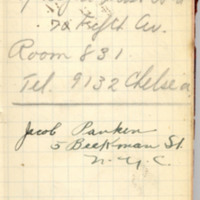 70 Fifth Av.
Room 831
Tel. 9132 Chelsea
Jacob Panken
5 Beekman St.
N.Y.C.